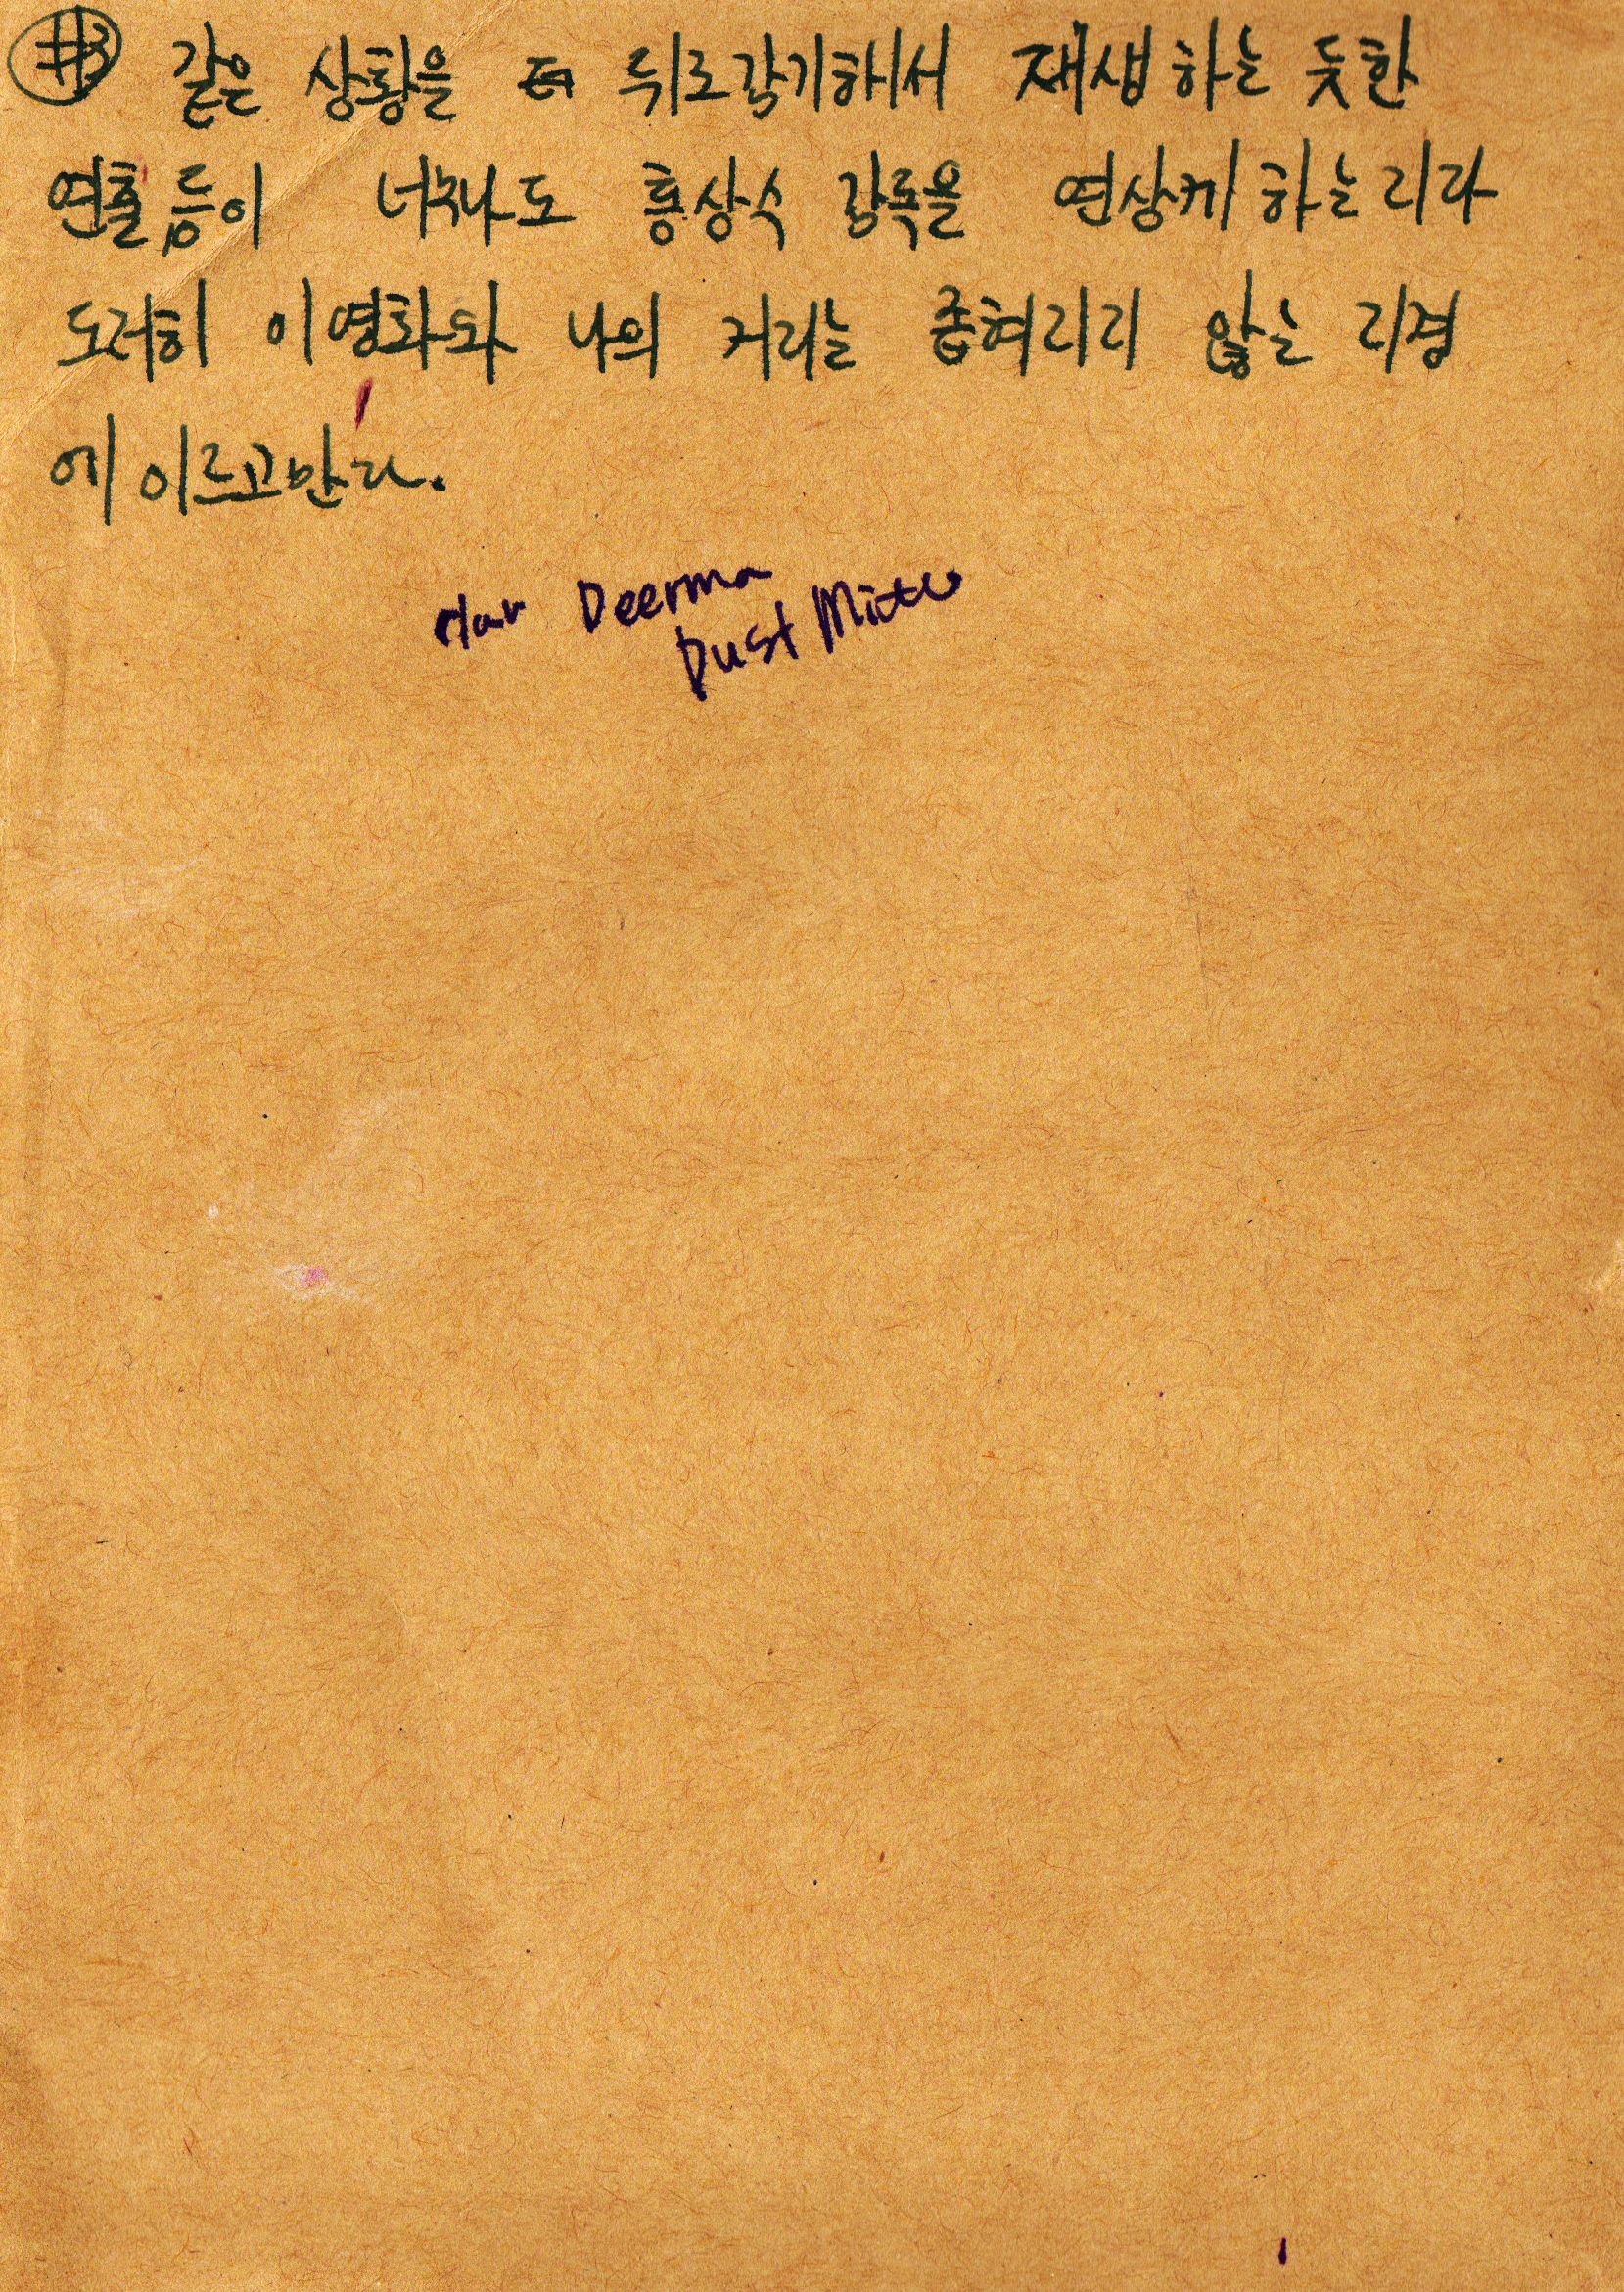 #3 같은 상황을 뒤로감기해서 재생하는 듯한
연출 등이 너무나도 홍상수 감독을 연상케 하는지라
도저히 이 영화와 나의 거리는 좁혀지지 않는 지경
에 이르고 만다.
Deerma
Dust Mite